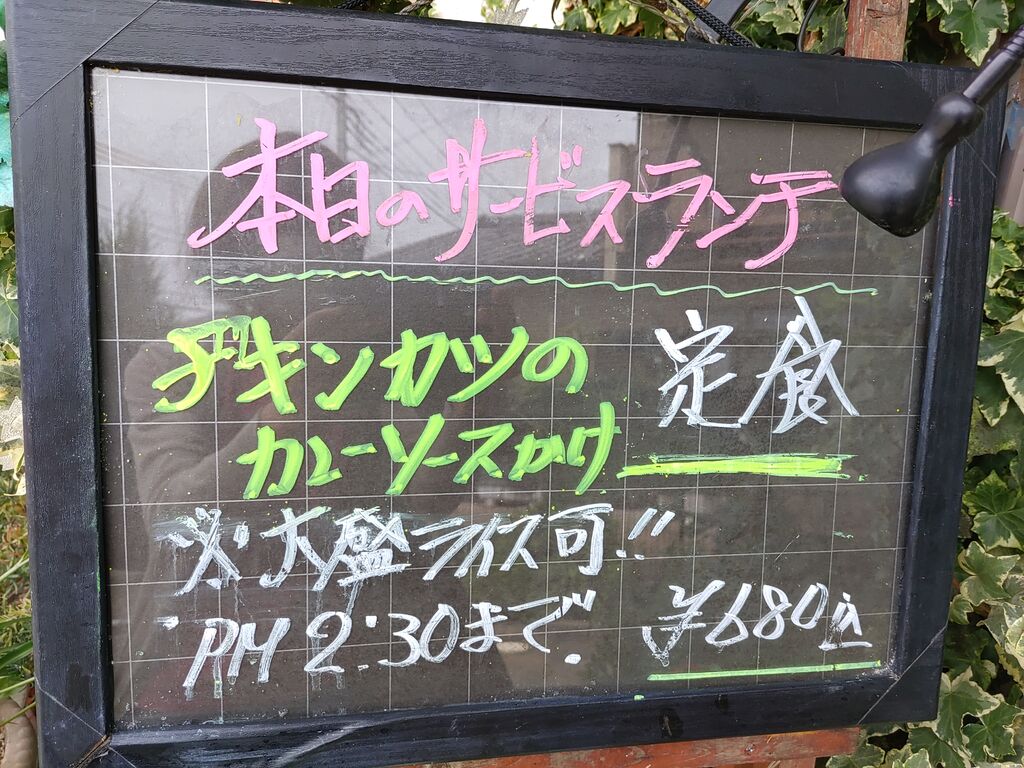 本日のサービスランチ
チキンカツの
カレーソースかけ
定食
※大盛ライス可!!
PM 2:30まで。
¥680